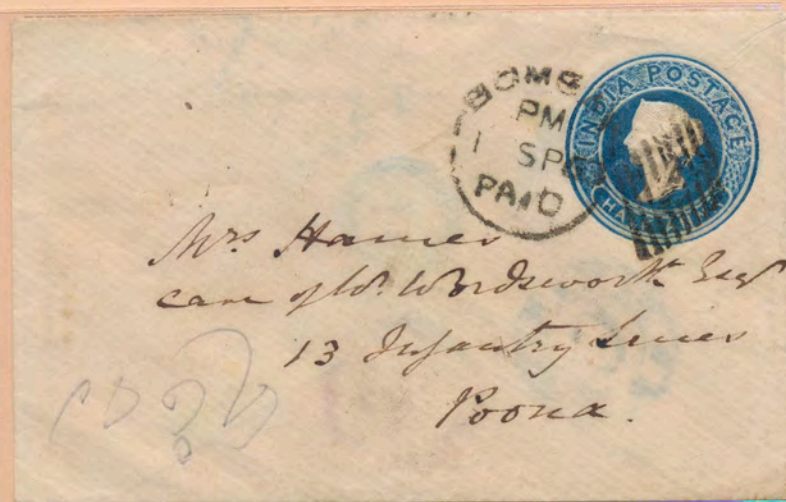 BOMB
PM
1 SP
PAID
INDIA POSTAGE
HA
Mrs Hames
care of W. Wordsworth Esqr
13 Infantry Lines
Poona.